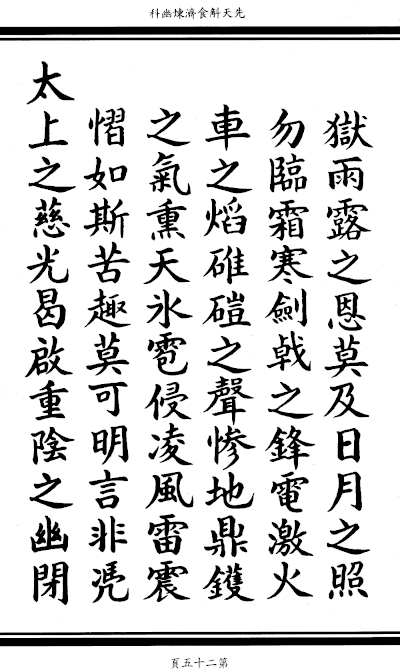 先天斛食濟煉幽科
獄雨露之恩莫及日月之照
勿臨霜寒劍戟之鋒電激火
車之熖碓磑之聲慘地鼎鑊
之氣熏天氷雹侵凌風雷震
慴如斯苦趣莫可明言非凴
太上之慈光曷啟重陰之幽閉
第二十五頁